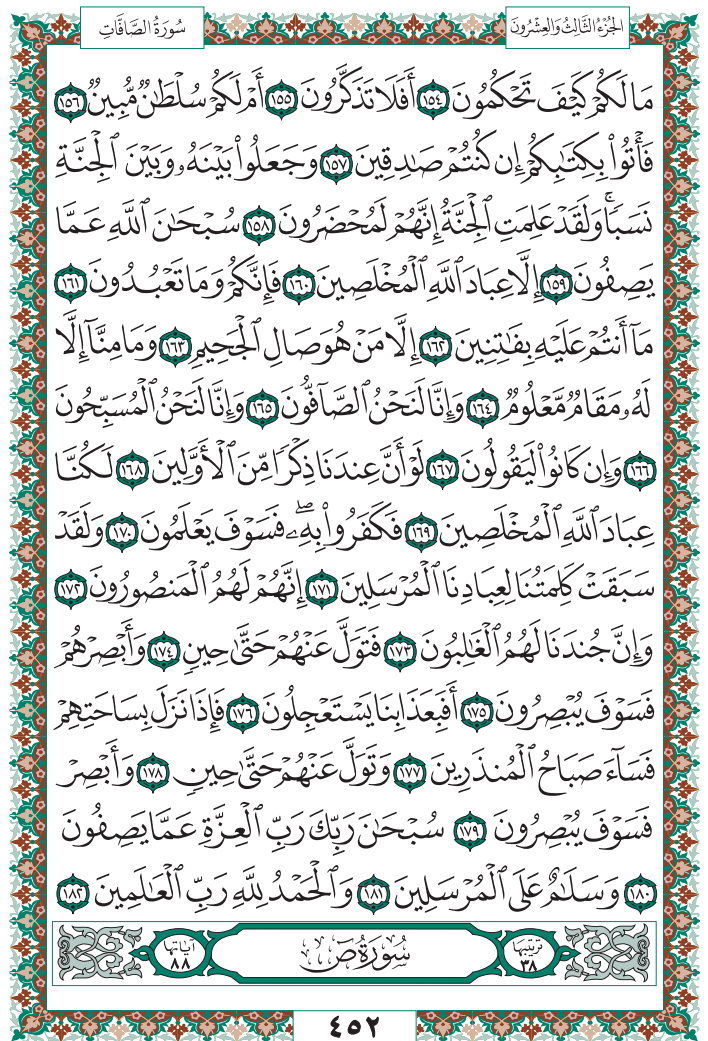 الجُزْءُ الثَّالِثُ وَالعِشْرُونَ
سُورَةُ الصَّافَّاتِ
مَا لَكُمْ كَيْفَ تَحْكُمُونَ ١٥٤ أَفَلَا تَذَكَّرُونَ ١٥٥ أَمْ لَكُمْ سُلْطَٰنٌ مُّبِينٌ ١٥٦
فَأْتُوا۟ بِكِتَٰبِكُمْ إِن كُنتُمْ صَٰدِقِينَ ١٥٧ وَجَعَلُوا۟ بَيْنَهُۥ وَبَيْنَ ٱلْجِنَّةِ
نَسَبًا ۚ وَلَقَدْ عَلِمَتِ ٱلْجِنَّةُ إِنَّهُمْ لَمُحْضَرُونَ ١٥٨ سُبْحَٰنَ ٱللَّهِ عَمَّا
يَصِفُونَ ١٥٩ إِلَّا عِبَادَ ٱللَّهِ ٱلْمُخْلَصِينَ ١٦٠ فَإِنَّكُمْ وَمَا تَعْبُدُونَ ١٦١
مَآ أَنتُمْ عَلَيْهِ بِفَٰتِنِينَ ١٦٢ إِلَّا مَنْ هُوَ صَالِ ٱلْجَحِيمِ ١٦٣ وَمَا مِنَّآ إِلَّا
لَهُۥ مَقَامٌ مَّعْلُومٌ ١٦٤ وَإِنَّا لَنَحْنُ ٱلصَّآفُّونَ ١٦٥ وَإِنَّا لَنَحْنُ ٱلْمُسَبِّحُونَ
١٦٦ وَإِن كَانُوا۟ لَيَقُولُونَ ١٦٧ لَوْ أَنَّ عِندَنَا ذِكْرًا مِّنَ ٱلْأَوَّلِينَ ١٦٨ لَكُنَّا
عِبَادَ ٱللَّهِ ٱلْمُخْلَصِينَ ١٦٩ فَكَفَرُوا۟ بِهِۦ ۖ فَسَوْفَ يَعْلَمُونَ ١٧٠ وَلَقَدْ
سَبَقَتْ كَلِمَتُنَا لِعِبَادِنَا ٱلْمُرْسَلِينَ ١٧١ إِنَّهُمْ لَهُمُ ٱلْمَنصُورُونَ ١٧٢
وَإِنَّ جُندَنَا لَهُمُ ٱلْغَٰلِبُونَ ١٧٣ فَتَوَلَّ عَنْهُمْ حَتَّىٰ حِينٍ ١٧٤ وَأَبْصِرْهُمْ
فَسَوْفَ يُبْصِرُونَ ١٧٥ أَفَبِعَذَابِنَا يَسْتَعْجِلُونَ ١٧٦ فَإِذَا نَزَلَ بِسَاحَتِهِمْ
فَسَآءَ صَبَاحُ ٱلْمُنذَرِينَ ١٧٧ وَتَوَلَّ عَنْهُمْ حَتَّىٰ حِينٍ ١٧٨ وَأَبْصِرْ
فَسَوْفَ يُبْصِرُونَ ١٧٩ سُبْحَٰنَ رَبِّكَ رَبِّ ٱلْعِزَّةِ عَمَّا يَصِفُونَ
١٨٠ وَسَلَٰمٌ عَلَى ٱلْمُرْسَلِينَ ١٨١ وَٱلْحَمْدُ لِلَّهِ رَبِّ ٱلْعَٰلَمِينَ ١٨٢
ترتيبها ٣٨ سُورَةُ صٓ آياتها ٨٨
٤٥٢